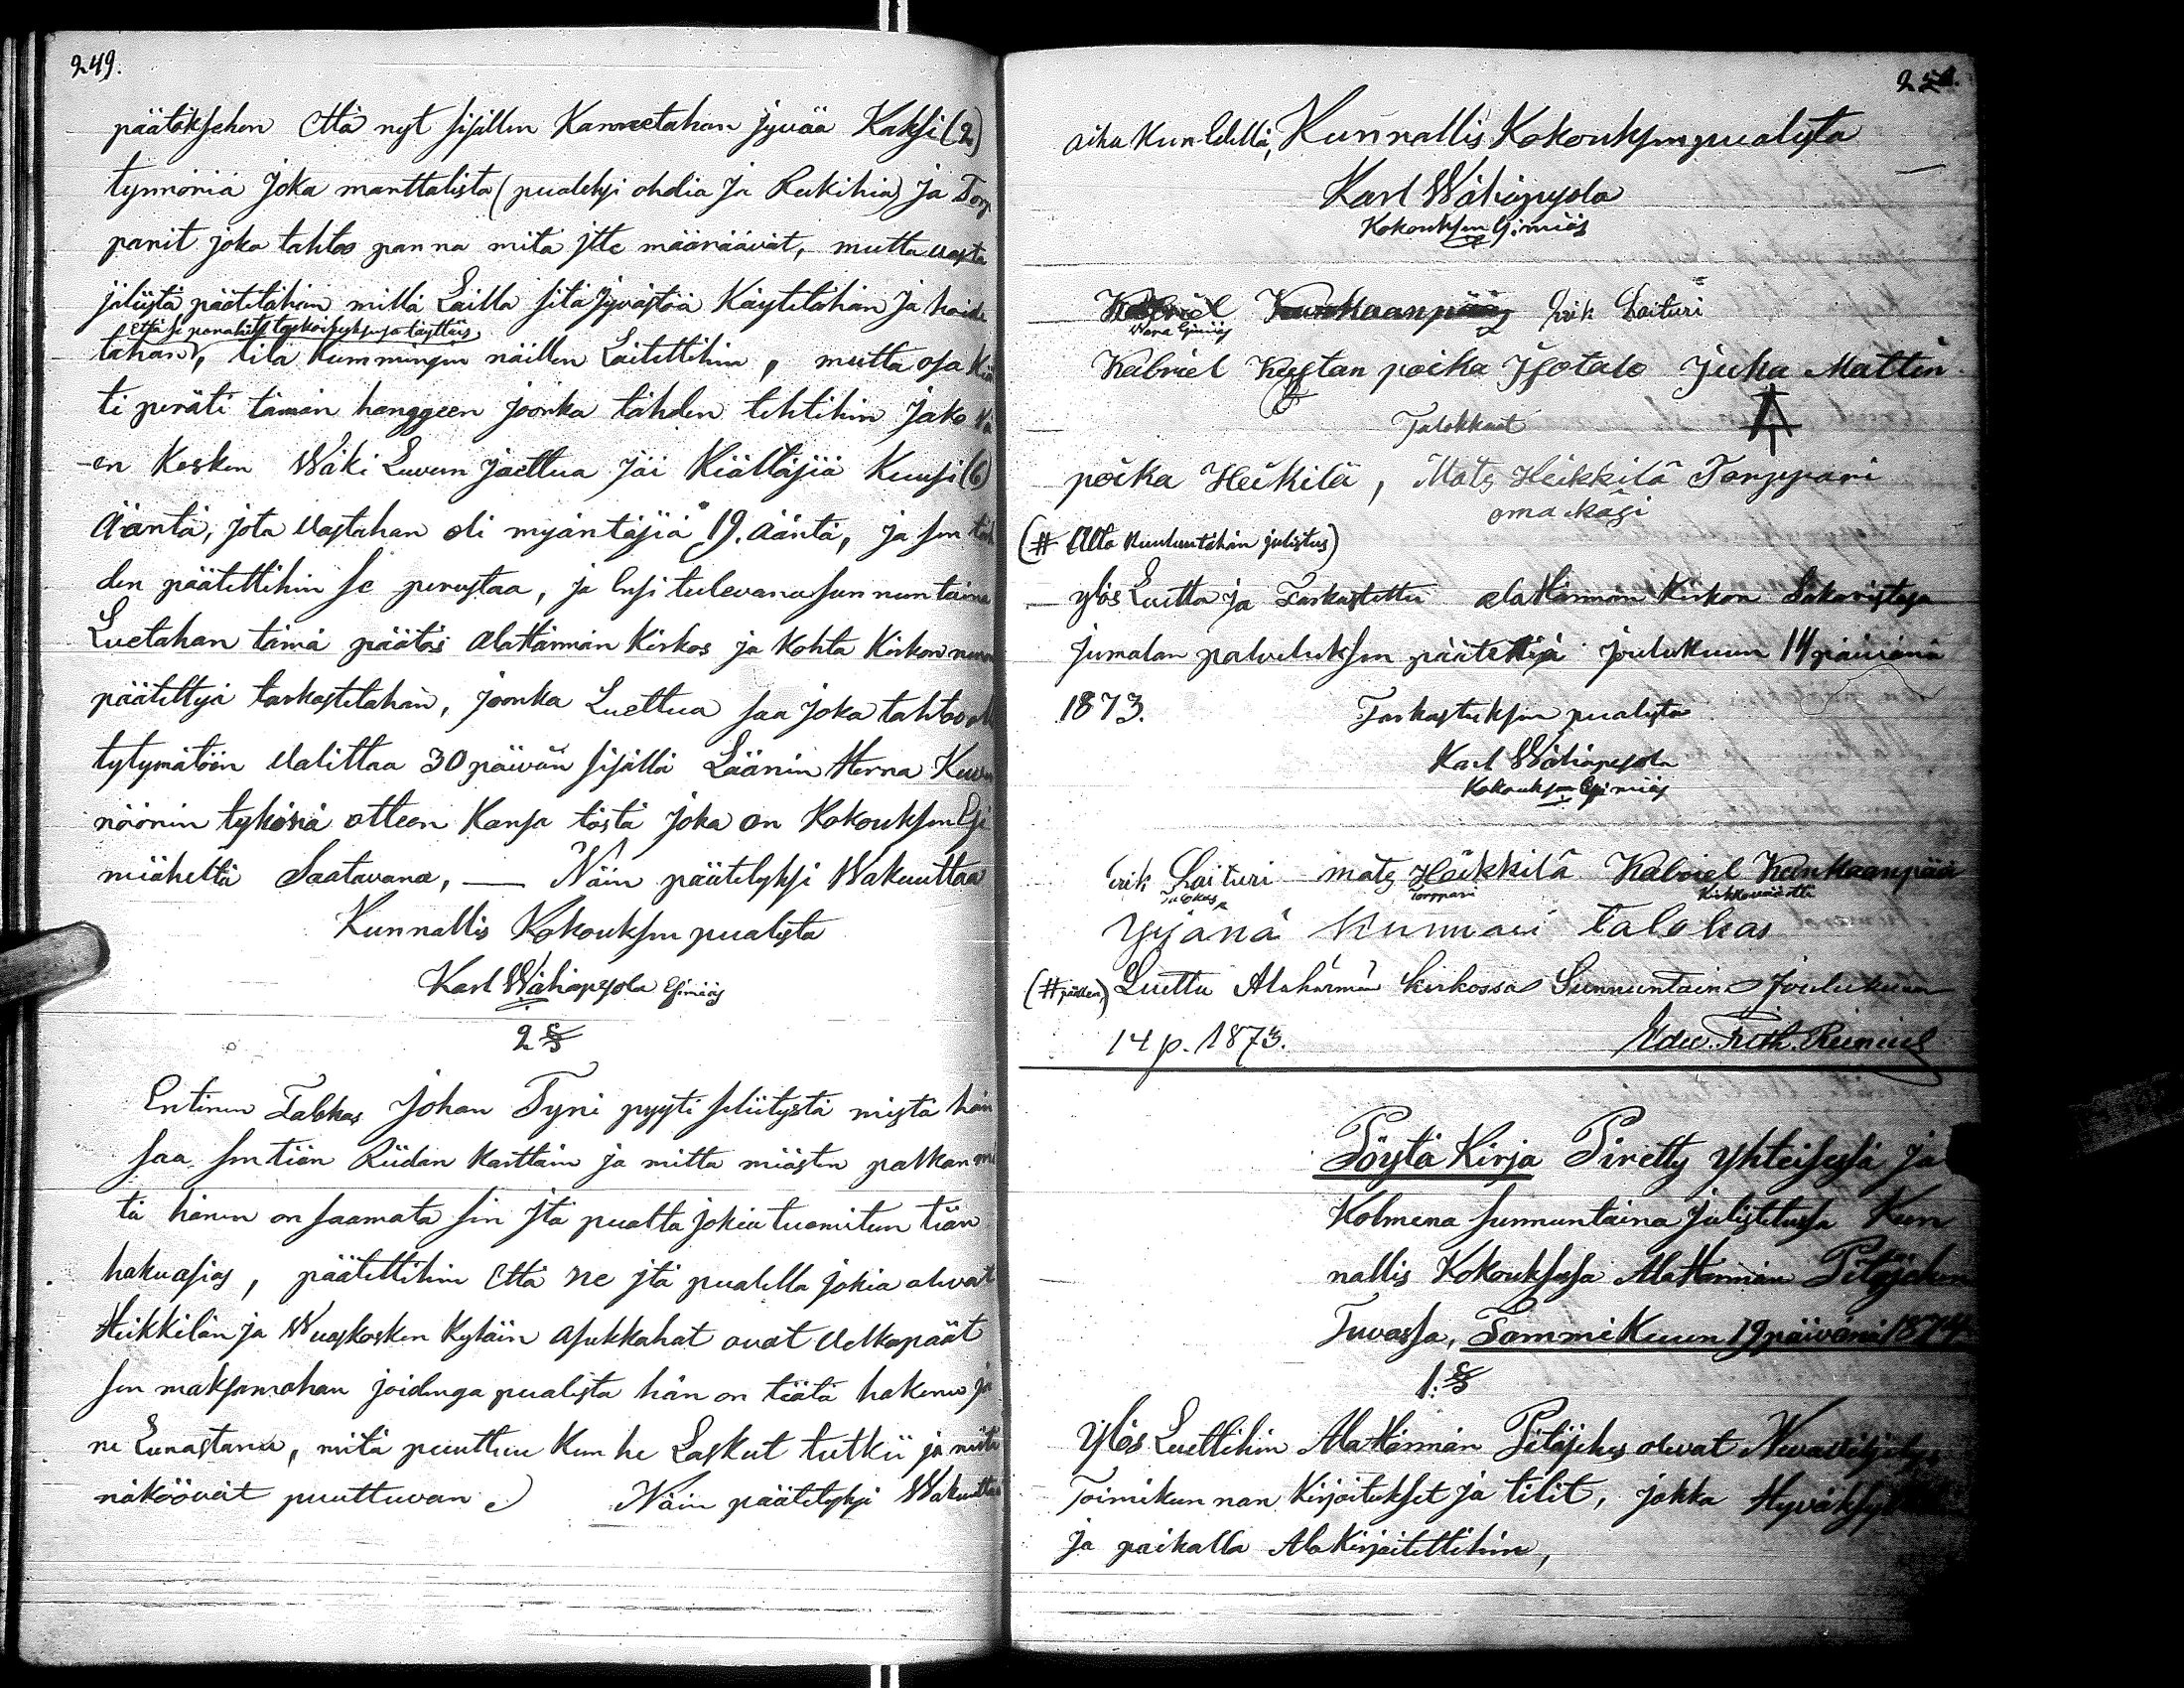 249.
päätöksehen Että nyt sisällen Kannetahan jyvää Kaksi (2)
tynnöriä Joka manttalista (pualeksi ohdia Ja Rukihia) Ja Torp
parit joka tahtoo panna mitä itte määräävät, mutta vasta
jälistä päätetähän millä Lailla sitä Jyvästöä Käytetähän Ja hoide
Että se parahite tarkoituksensa täyttäis
tähän, tila kummingin näillen Laitettihin, mutta osa kiäl
ti peräti tämän hanggeen joonka tähden tehtihin Jako Vä
en Kesken Wäki Luvun jaettua Jäi Kiältäjiä Kuusi (6)
Ääntä, jota Vastahan oli myäntäjiä 19. ääntä, ja sen täh
den päätettihin se perustaa, ja Ensi tulevana sunnuntaina
Luetahan tämä päätös AlaHärmän Kirkos ja kohta Kirkon menon
päätettyä tarkastetahan, joonka Luettua saa Joka tahtoo
tytymätöön Valittaa 30 päivän sisällä Läänin Herra Kuver
nöörin tykönä otteen Kansa tästä joka on Kokouksen Esi
miäheltä Saatavana, — Näin päätetyksi Wakuuttaa
Kunnallis Kokouksen pualesta
Karl Wähäpesola Esimiäs
2 §
Entinen Talokas Johan Tyni pyyti selitystä mistä hän
saa sen tiän Riidan Karttain ja mitta miästen palkan mi
tä hänen on saamata sen Itä pualta jokia tuomitun tiän
hakuasias, päätettihin Että ne itä pualella jokia olevat
Heikkilän ja Wuoskosken Kyläin asukkahat ovat Velkapäät
sen maksamahan joidenga pualesta hän on tiätä hakenu ja
ne Lunastava, mitä puuttuu kun he Laskut tutkii ja mitä
näköövät puuttuvan Näin päätetyksi Wakuuttaa
aika Kun Edellä, Kunnallis Kokouksen pualesta
Karl Wähäpesola
Kokouksen Esimiäs
Kabriel Kankaanpää Erik Laituri
Wara Esimiäs
Kabriel Kustan poika Isotalo Juha Mattin
Talokkaat
poika Heikilä, Mats Heikkilä Torppari
oma käsi
(# Alla kuulutähän julistus)
ylös Luettu ja Tarkastettu alaHärmän Kirkon Sakaristosa
Jumalan palveluksen päätettyä joulukuun 14 päivänä
1873. Tarkastuksen pualesta
Karl Wähäpesola
Kokouksen Esimiäs
Erik Laituri mats Heikkilä Kabriel Kankaanpää
Talokas Torppari Kirkkoväärtti
Yrjänä Kunnari talokas
(# päällen) Luettu Alahärmän kirkossa Sunnuntaina Joulukuun
14 p. 1873. Edw. Frith. Reinius
Pöytä Kirja Piretty Yhteisessä ja
Kolmena sunnuntaina Julistetussa Kun
nallis Kokouksesa AlaHärmän Pitäjähen
Tuvassa, Tammi Kuun 19 päivänä 1874
1. §
Ylös Luettihin AlaHärmän Pitäjähes olevat
Toimikunnan Kirjoitukset Ja tilit, jokka
Ja paikalla Ala Kirjoitettihin,